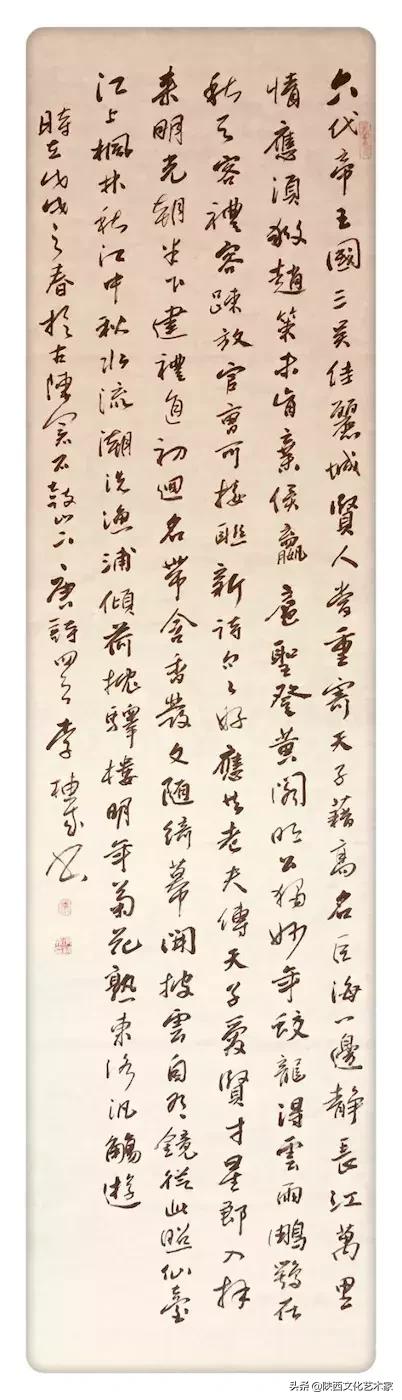 六代帝王國三吳佳麗城賢人當重寄天子藉高名巨海一邊靜長江萬里
情應須救趙策未肯棄侯嬴扈聖登黃閣明公獨妙年蛟龍得雲雨鵰鶚在
秋天客禮容疎放官曹可接聯新詩句々好應共老夫傳天子愛賢才星郎入拜
來明光朝半下建禮直初迴名帶含香發文隨綺幕開披雲自有鏡從此照仙臺
江上楓林秋江中秋水流潮洗漁浦傾荷枕驛樓明年菊花熟東洛泛觴遊
時在戊戌之春於古陳倉石鼓山下唐詩四首李書
头条 @陕西文化艺术家